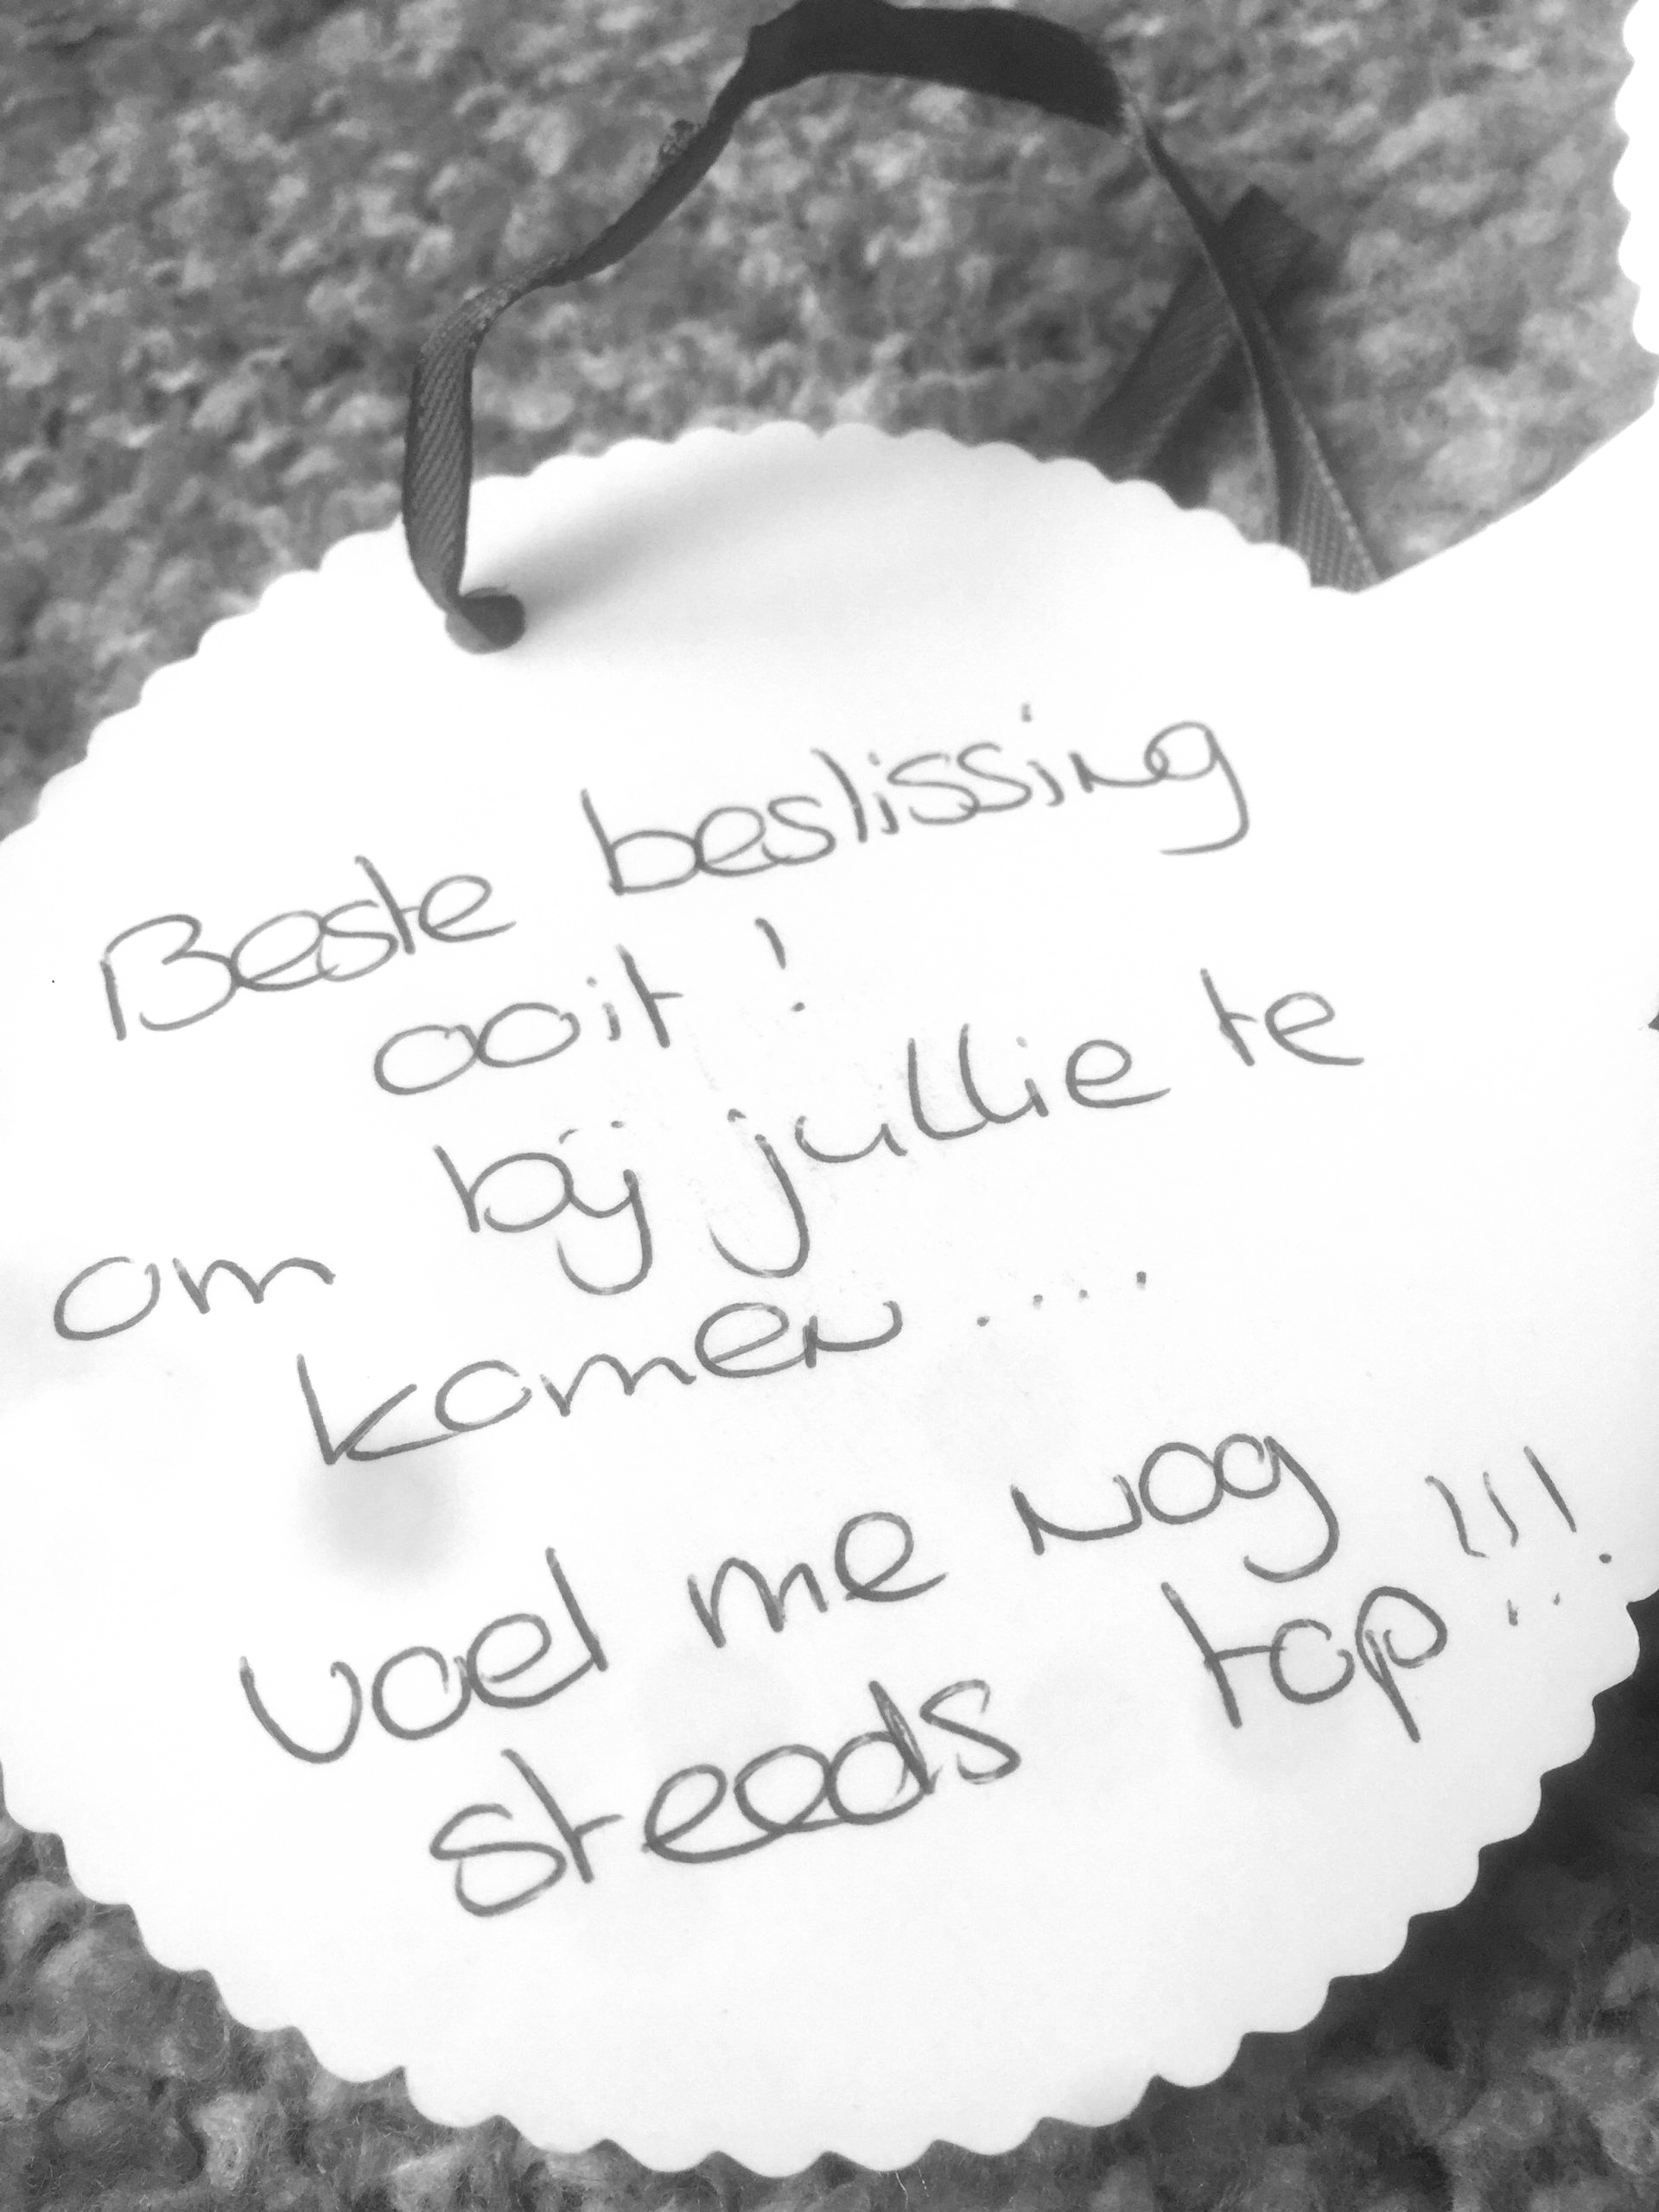 Beste beslissing
ooit!
om bij jullie te
komen....
voel me nog
steeds top!!!